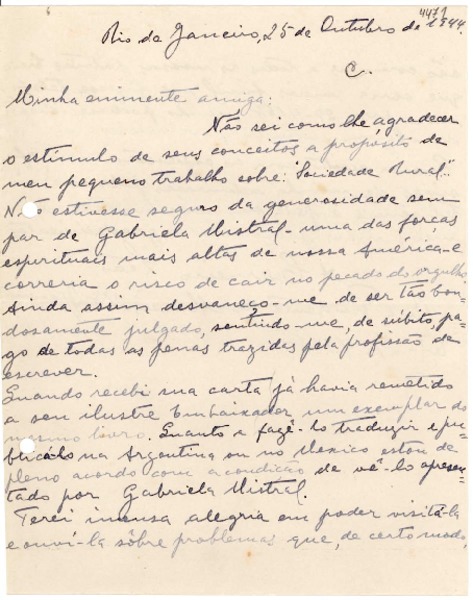 4479
Rio de Janeiro, 25 de Outubro de 1944.
C.
Minha eminente amiga:
Não sei como lhe agradecer
o estímulo de seus conceitos a proposito de
meu pequeno trabalho sobre: "Sociedade Rural".
Não estivesse seguro da generosidade sem
par de Gabriela Mistral - uma das forças
espirituais mais altas de nossa América - e
correria o risco de cair no pecado do orgulho.
Ainda assim desvaneço-me de ser tão bon-
dosamente julgado, sentindo-me, de súbito, pa-
go de todas as penas trazidas pela profissão de
escrever.
Quando recebi sua carta já havia remetido
a seu ilustre Embaixador um exemplar do
mesmo livro. Quanto a fazê-lo traduzir e pu-
blicalo na Argentina ou no Mexico estou de
pleno acordo com a condição de vê-lo apresen-
tado por Gabriela Mistral.
Terei imensa alegria em poder visitá-la
e ouví-la sôbre problemas que, de certo modo,